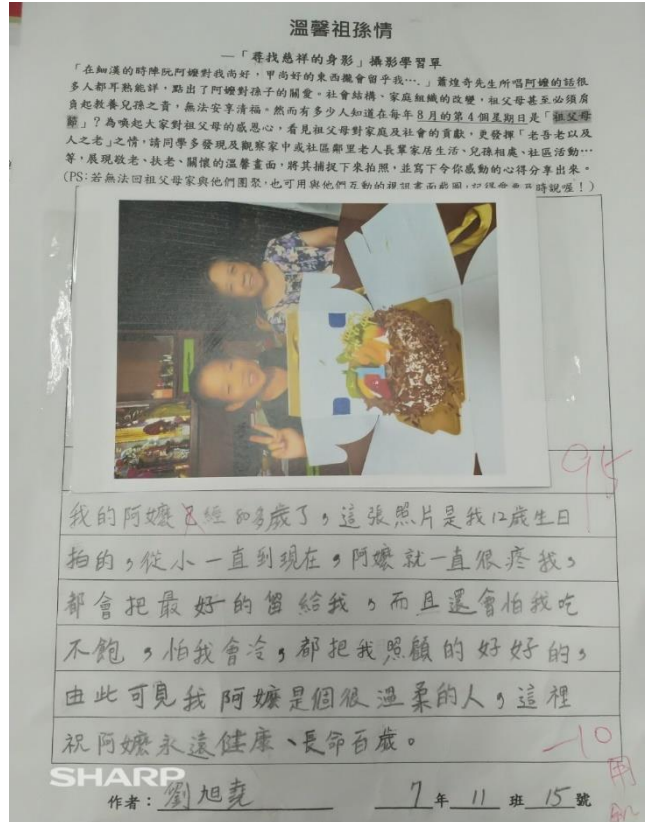 溫馨祖孫情
—「尋找慈祥的身影」攝影學習單
「在細漢的時陣阮阿嬤對我尚好，甲尚好的東西攏會留乎我….」蕭煌奇先生所唱阿嬤的話很
多人都耳熟能詳，點出了阿嬤對孫子的關愛。社會結構、家庭組織的改變，祖父母甚至必須肩
負起教養兒孫之責，無法安享清福。然而有多少人知道在每年 8 月的第 4 個星期日是「祖父母
節」？為喚起大家對祖父母的感恩心，看見祖父母對家庭及社會的貢獻，更發揮「老吾老以及
人之老」之情，請同學多發現及觀察家中或社區鄰里老人長輩家居生活、兒孫相處、社區活動…
等，展現敬老、扶老、關懷的溫馨畫面，將其捕捉下來拍照，並寫下令你感動的心得分享出來。
(PS:若無法回祖父母家與他們團聚，也可用與他們互動的視訊畫面截圖，記得愛要及時說喔！)
95
我的阿嬤已經80多歲了，這張照片是我12歲生日
拍的，從小一直到現在，阿嬤就一直很疼我，
都會把最好的留給我，而且還會怕我吃
不飽，怕我會冷，都把我照顧的好好的，
由此可見我阿嬤是個很溫柔的人，這裡
祝阿嬤永遠健康、長命百歲。
-10
SHARP
作者：劉旭堯 7 年 11 班 15 號